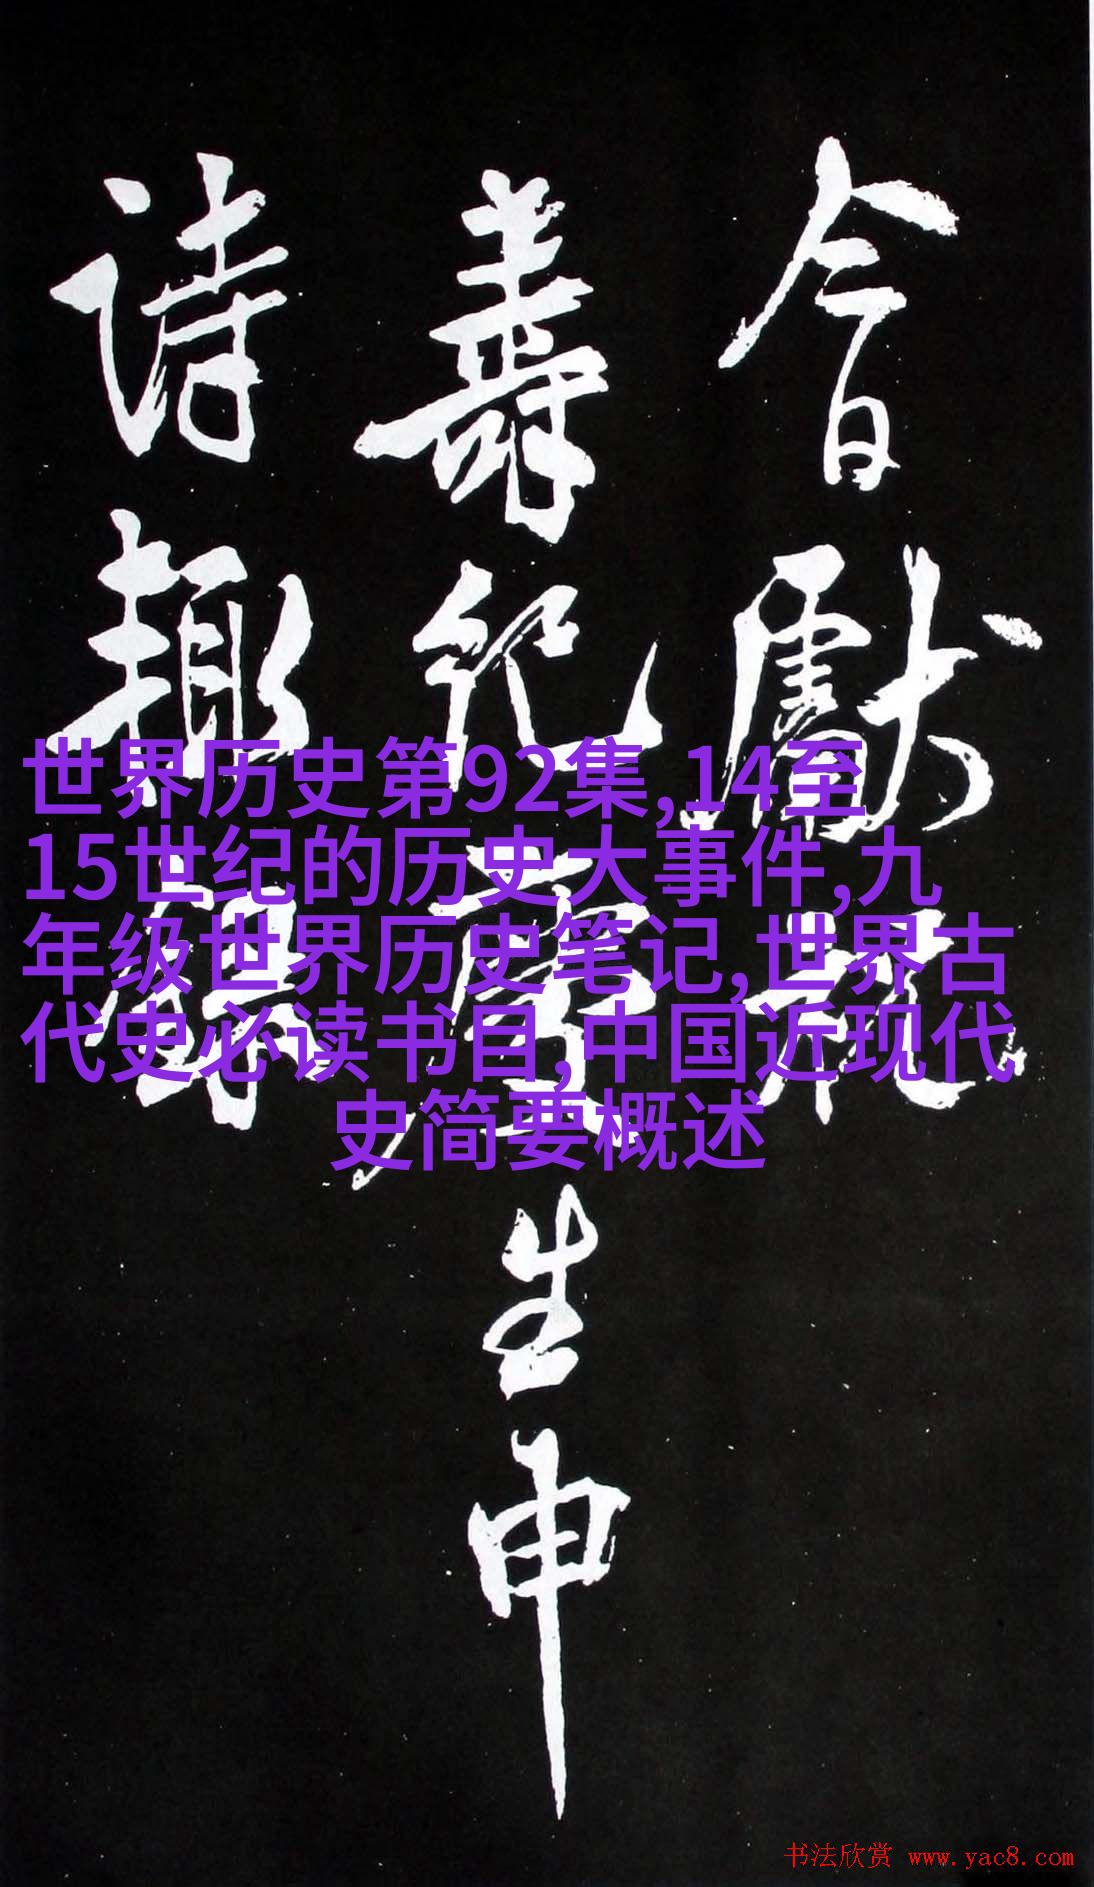 世界历史第92集,14至
15世纪的历史大事件,九
年级世界历史笔记,世界古
代史必读书目,中国近现代
史简要概述
今日獻
壽
生申
詩趣
书法欣赏 www.yac8.com